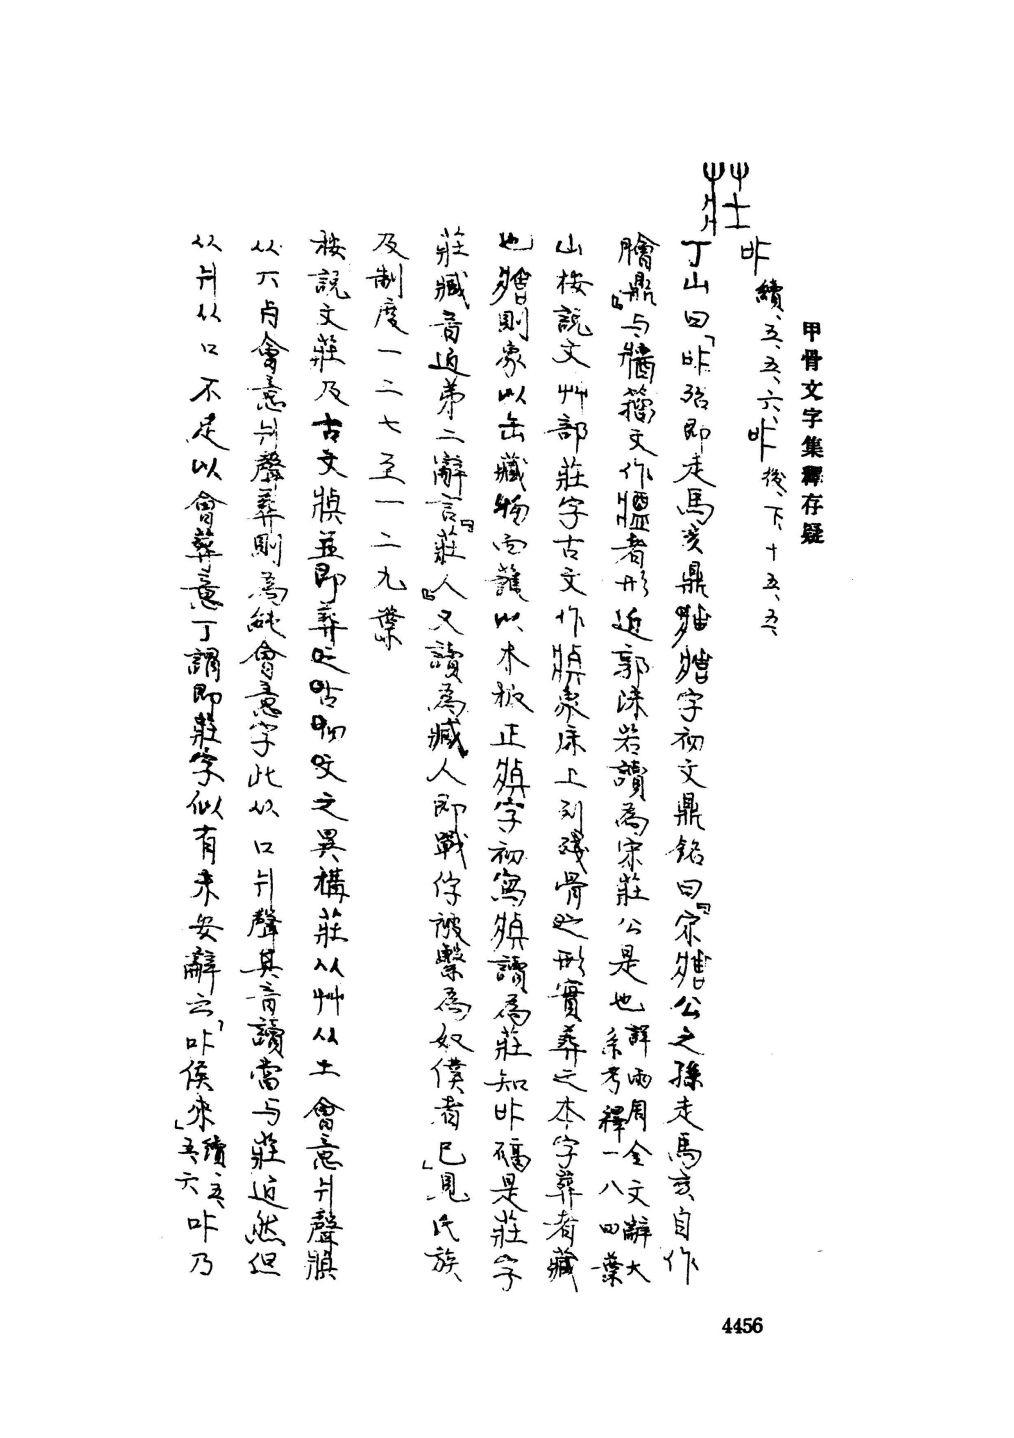 甲骨文字集釋存疑
莊
續、五、五、六、後、下、十五、五、
丁山曰「即走馬亥鼎字初文鼎銘曰『宋公之孫走馬亥自作
鼎』与籀文作者形近郭沫若讀為宋莊公是也
詳兩周金文辭大
系考釋一八四葉
山桉說文艸部莊字古文作象牀上列殘骨之形實葬之本字葬者藏
也則象以缶藏物而薦以木板正字初寫讀為莊知確是莊字
莊臧音近第二辭言『莊人』又讀為臧人即戰俘被繫為奴僕者已」見氏族
及制度一二七至一二九葉
桉說文莊及古文並即葬之異構莊从艸从土會意爿聲
从六歺會意爿聲葬則為純會意字此从口爿聲其音讀當与莊近然但
从爿从口不足以會葬意丁謂即莊字似有未安辭云「侯來」
續、五、
五、六
乃
4456